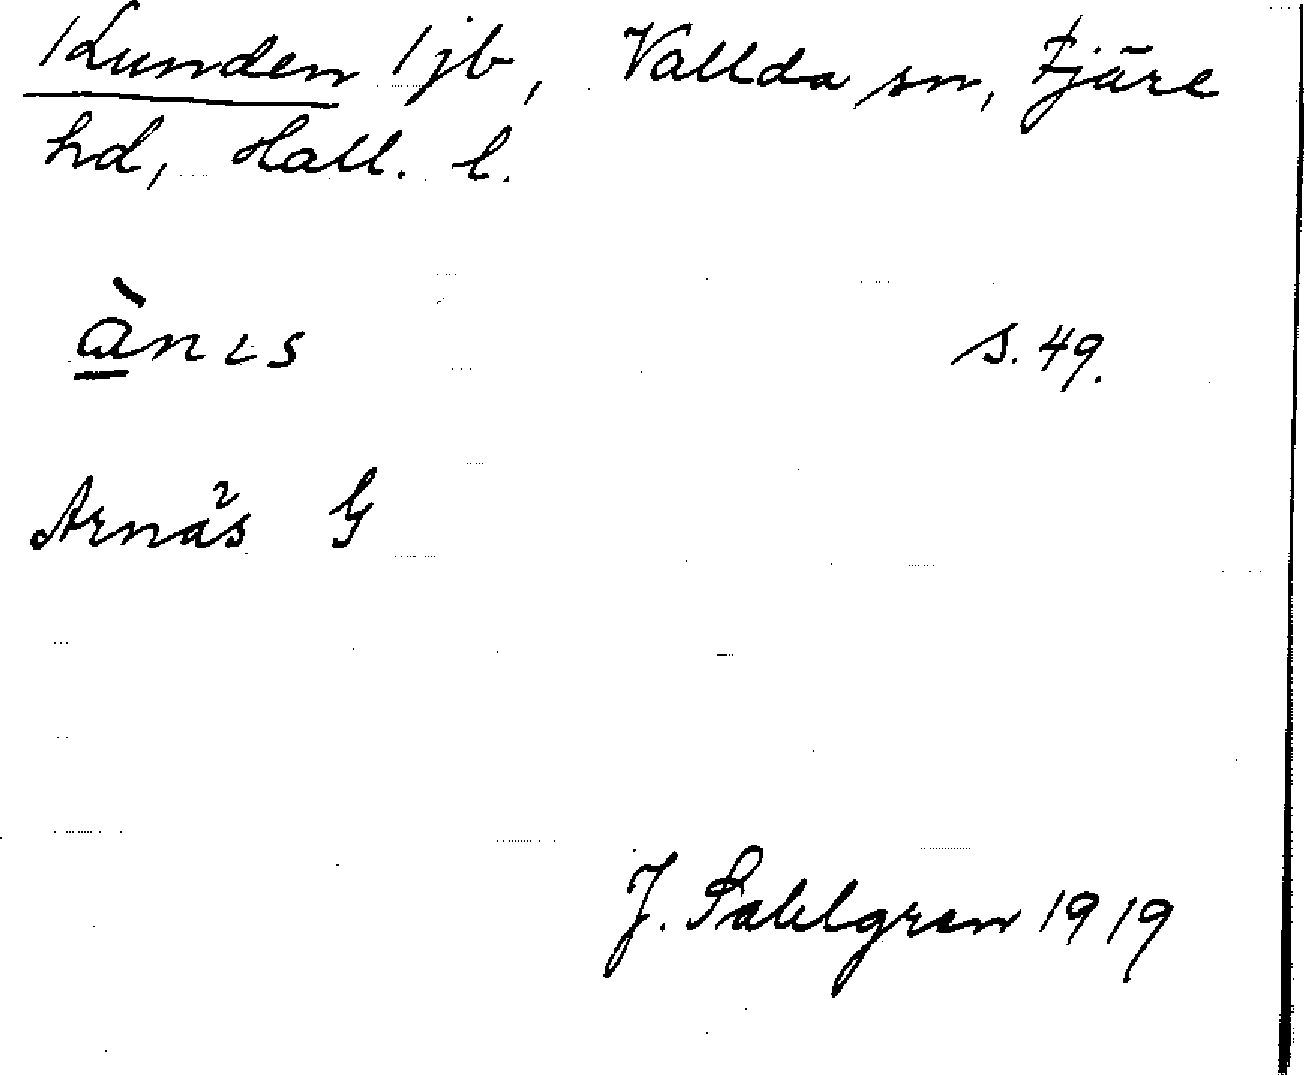 Kunden 1 jb, Vallda sn, Fjäre
hd, Hall. l.
ànɩs s. 49.
Arnäs G
J. Sahlgren 1919